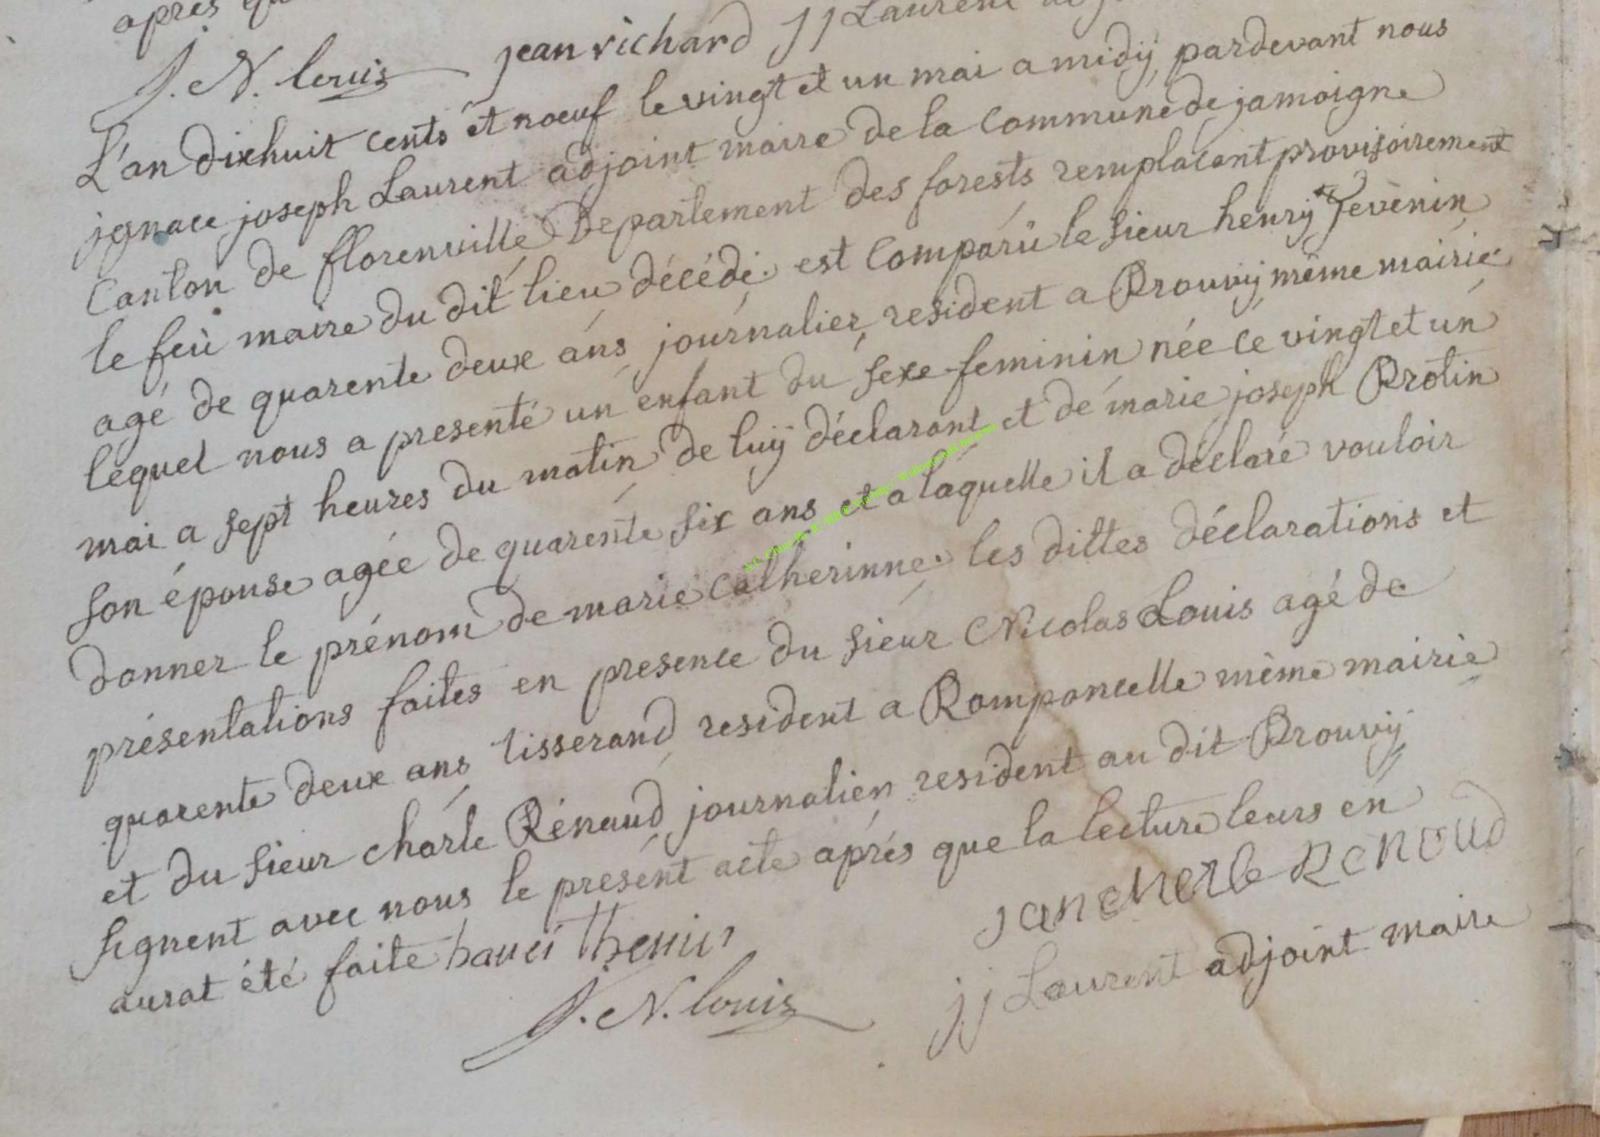 après
J. N. louis jean richard jj Laurent
L'an dixhuit cents et noeuf le vingt et un mai a midÿ pardevant nous
jgnace joseph Laurent adjoint maire de la commune de jamoigne
Canton de florenville Departement des forests remplacant provisoirement
le feü maire du dit lieu décédé. est comparü le sieur henrÿ Tevènin
agé de quarente deux ans journalier resident a Prouvÿ même mairie
lequel nous a presenté un enfant du sexe feminin née ce vingt et un
mai a sept heures du matin de luÿ déclarant et de marie joseph Protin
son épouse agée de quarente six ans et a laquelle il a déclaré vouloir
donner le prénom de marie Catherinne. les dittes déclarations et
présentations faites en presence du sieur Nicolas Louis agé de
quarente deux ans tisserand resident a Romponcelle même mairie
et du sieur charle Rénaud journalien resident au dit Prouvÿ
signent avec nous le présent acte aprés que la lecture leurs en
aurat été faite
jan cherle Renoud
J. N. louis
jj Laurent adjoint maire